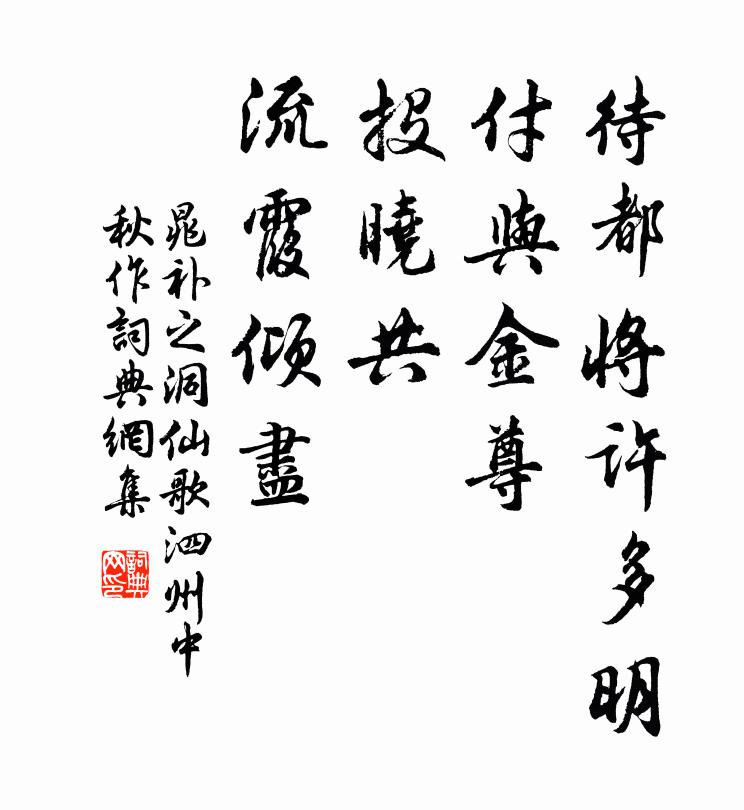 待都將許多明
付與金尊
投曉共
流霞傾盡
晁补之洞仙歌泗州中
秋作詞典網集
詞典
网印